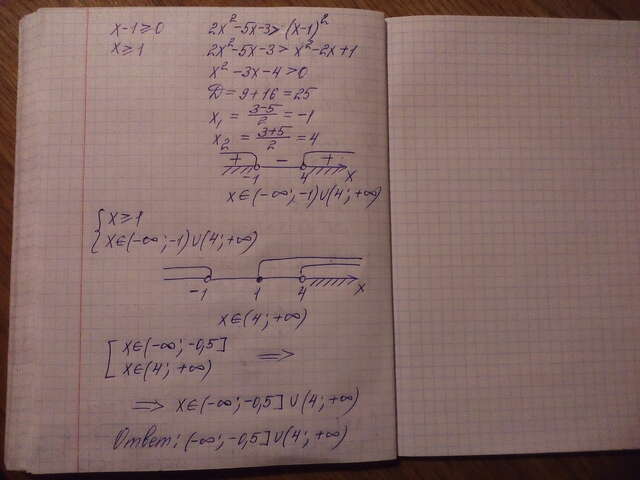 x-1≥0 2x²-5x-3>(x-1)²
x≥1 2x²-5x-3>x²-2x+1
x²-3x-4>0
D=9+16=25
x₁=(3-5)/2=-1
x₂=(3+5)/2=4
+ - +
-1 4 x
x∈(-∞;-1)∪(4;+∞)
{x≥1
x∈(-∞;-1)∪(4;+∞)
-1 1 4 x
x∈(4;+∞)
[x∈(-∞;-0,5]
x∈(4;+∞) ⟹
⟹ x∈(-∞;-0,5]∪(4;+∞)
Ответ: (-∞;-0,5]∪(4;+∞)